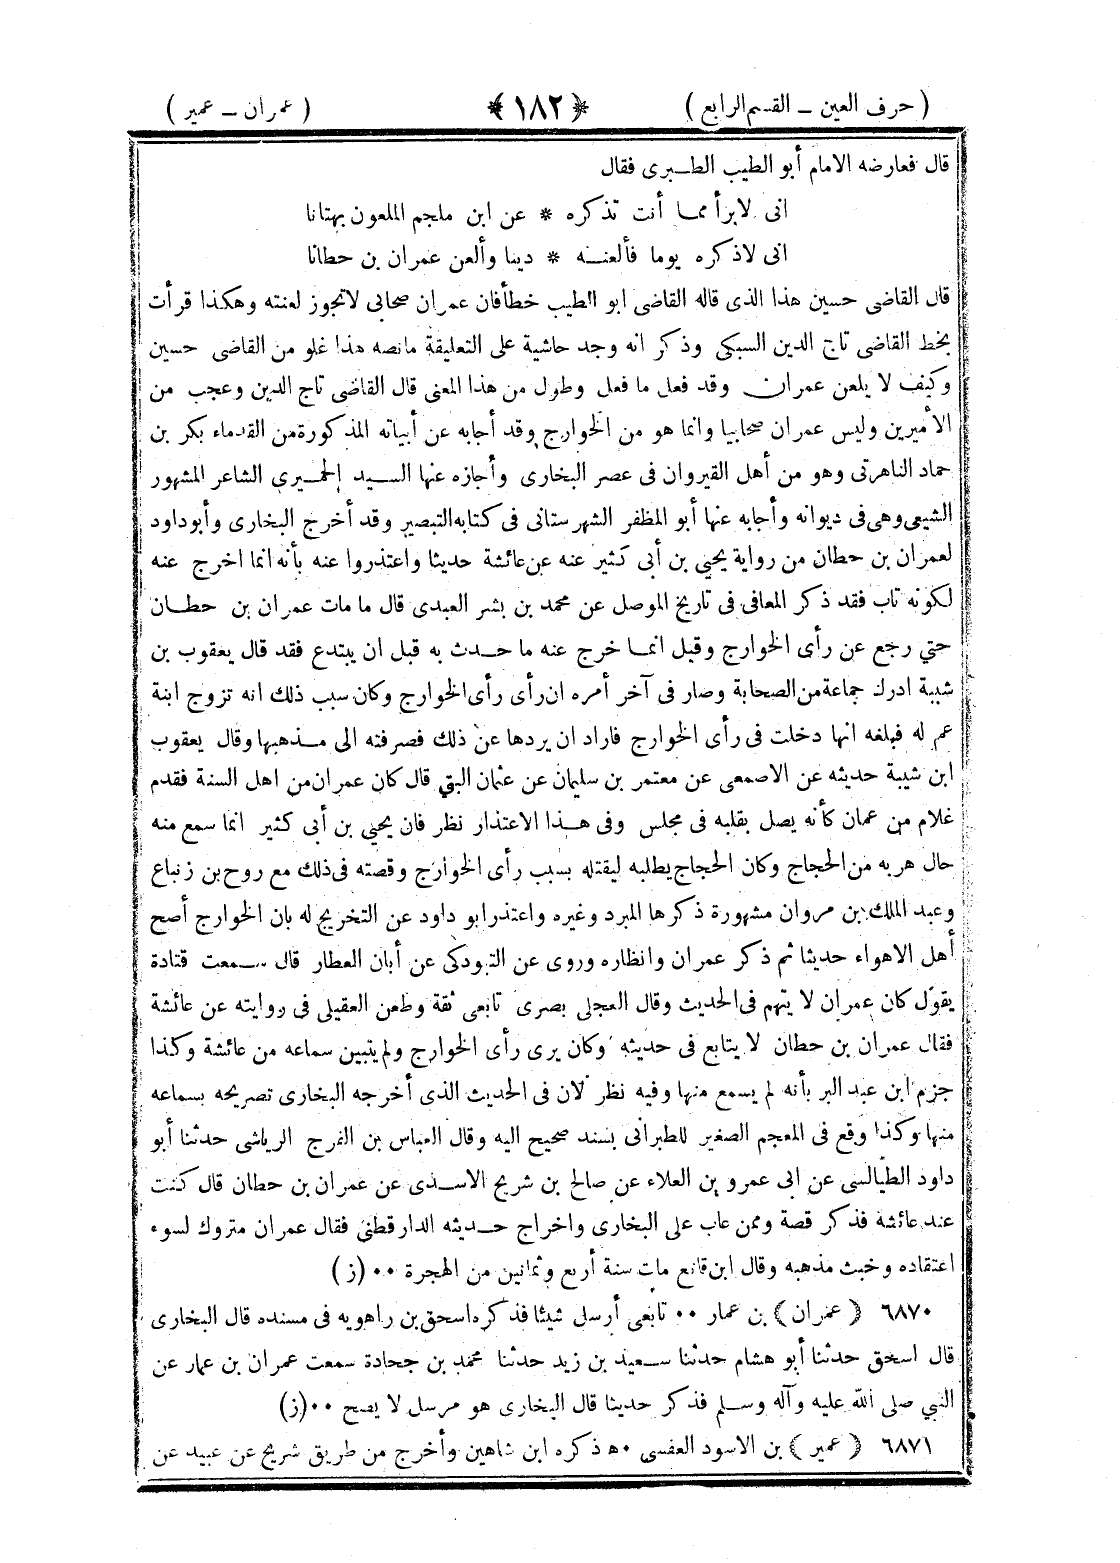 ( حرف العين – القسم الرابع ) ﴿ ١٨٢ ﴾ ( عمران – عمير )
قال فعارضه الامام أبو الطيب الطبرى فقال
انى لابرأ مما أنت تذكره * عن ابن ملجم الملعون بهتانا
انى لاذكره يوما فألعنه * دينا وألعن عمران بن حطانا
قال القاضى حسين هذا الذى قاله القاضى ابو الطيب خطأ فان عمران صحابى لاتجوز لعنته وهكذا قرأت
بخط القاضى تاج الدين السبكى وذكر انه وجد حاشية على التعليقة مانصه هذا غلو من القاضى حسين
وكيف لا يلعن عمران وقد فعل ما فعل وطول من هذا المعنى قال القاضى تاج الدين وعجب من
الأميرين وليس عمران صحابيا وانما هو من الخوارج وقد أجابه عن أبياته المذكورة من القدماء بكر بن
حماد التاهرتى وهو من أهل القيروان فى عصر البخارى وأجازه عنها السيد الحميري الشاعر المشهور
الشيعى وهى فى ديوانه وأجابه عنها أبو المظفر الشهرستانى فى كتابه التبصير وقد أخرج البخارى وأبو داود
لعمران بن حطان من رواية يحيى بن أبى كثير عنه عن عائشة حديثا واعتذروا عنه بأنه انما اخرج عنه
لكونه تاب فقد ذكر المعافى فى تاريخ الموصل عن محمد بن بشر العبدى قال ما مات عمران بن حطان
حتي رجع عن رأى الخوارج وقيل انما خرج عنه ما حدث به قبل ان يبتدع فقد قال يعقوب بن
شيبة ادرك جماعة من الصحابة وصار فى آخر أمره ان رأى رأى الخوارج وكان سبب ذلك انه تزوج ابنة
عم له فبلغه انها دخلت فى رأى الخوارج فاراد ان يردها عن ذلك فصرفته الى مذهبها وقال يعقوب
ابن شيبة حديثه عن الاصمعى عن معتمر بن سليمان عن عثمان البتي قال كان عمران من اهل السنة فقدم
غلام من عمان كأنه يصل بقلبه فى مجلس وفى هذا الاعتذار نظر فان يحيي بن أبى كثير انما سمع منه
حال هربه من الحجاج وكان الحجاج يطلبه ليقتله بسبب رأى الخوارج وقصته فى ذلك مع روح بن زنباع
وعبد الملك بن مروان مشهورة ذكرها المبرد وغيره واعتذر ابو داود عن التخريج له بان الخوارج أصح
أهل الاهواء حديثا ثم ذكر عمران وانظاره وروى عن التبوذكى عن أبان العطار قال سمعت قتادة
يقول كان عمران لا يتهم فى الحديث وقال العجلى بصرى تابعى ثقة وطعن العقيلى فى روايته عن عائشة
فقال عمران بن حطان لا يتابع فى حديثه وكان يرى رأى الخوارج ولم يتبين سماعه من عائشة وكذا
جزم ابن عبد البر بأنه لم يسمع منها وفيه نظر لان فى الحديث الذى أخرجه البخارى تصريحه بسماعه
منها وكذا وقع فى المعجم الصغير للطبرانى بسند صحيح اليه وقال العباس بن الفرج الرياشى حدثنا أبو
داود الطيالسى عن ابى عمرو بن العلاء عن صالح بن شريح الاسدى عن عمران بن حطان قال كنت
عند عائشة فذكر قصة وممن عاب على البخارى واخراج حديثه الدارقطنى فقال عمران متروك لسوء
اعتقاده وخبث مذهبه وقال ابن قانع مات سنة أربع وثمانين من الهجرة ٠٠ ( ز )
٦٨٧٠ ﴿ عمران ﴾ بن عمار ٠٠ تابعى أرسل شيئا فذكره اسحق بن راهويه فى مسنده قال البخارى
قال اسحق حدثنا أبو هشام حدثنا سعيد بن زيد حدثنا محمد بن جحادة سمعت عمران بن عمار عن
النبي صلى الله عليه وآله وسلم فذكر حديثا قال البخارى هو مرسل لا يصح ٠٠ (ز)
٦٨٧١ ﴿ عمير ﴾ بن الاسود العفسى ٠٠ ذكره ابن شاهين وأخرج من طريق شريح عن عبيد عن